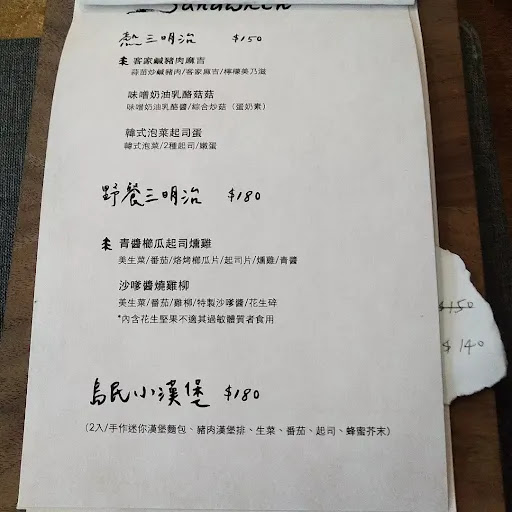 Sandwich
熱三明治 $150
客家鹹豬肉麻吉
蒜苗炒鹹豬肉/客家麻吉/檸檬美乃滋
味噌奶油乳酪菇菇
味噌奶油乳酪醬/綜合炒菇（蛋奶素）
韓式泡菜起司蛋
韓式泡菜/2種起司/嫩蛋
野餐三明治 $180
青醬櫛瓜起司燻雞
美生菜/番茄/烙烤櫛瓜片/起司片/燻雞/青醬
沙嗲醬燒雞柳
美生菜/番茄/雞柳/特製沙嗲醬/花生碎
*內含花生堅果不適其過敏體質者食用
$150
$140
島民小漢堡 $180
（2入/手作迷你漢堡麵包、豬肉漢堡排、生菜、番茄、起司、蜂蜜芥末）